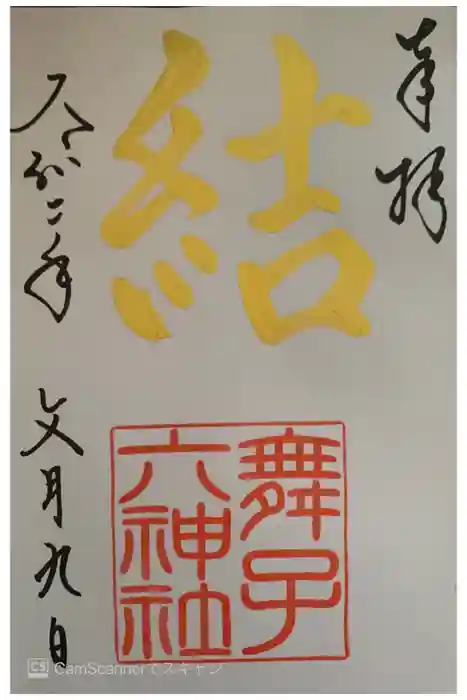 奉拝
結
舞子
六神社
令和二年 文月九日
CS CamScannerでスキャン